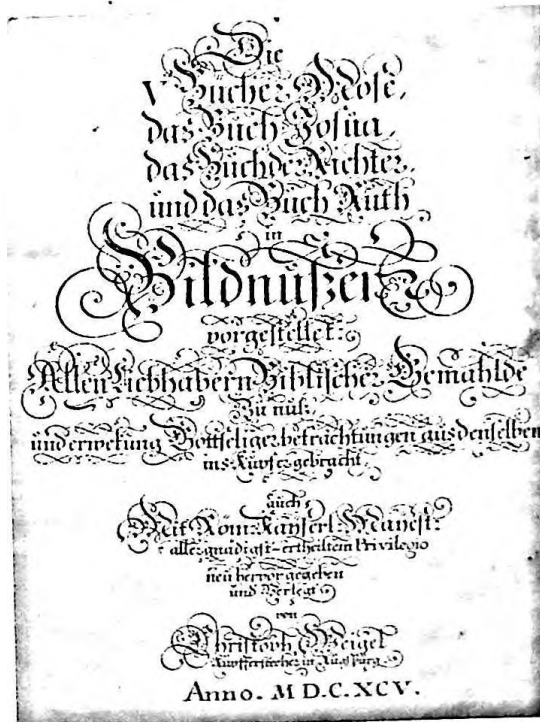 Die
V Bücher Mose,
das Buch Josüa,
das Büch der Richter,
ünd das Büch Rüth
in
Bildnüßen
vorgestellet:
Allen Liebhabern Biblischer Gemählde
Zu nutz,
ünd erwekung Gottseliger betrachtungen aüs denselben
ins Küpfer gebracht,
auch
Mit Röm: Kayserl: Mayest:
allergnädigst-ertheiltem Privilegio
neü hervor gegeben
und Verlegt
von
Christoph Weigel
Küpfferstecher in Augspürg.
Anno. M D.C.XCV.